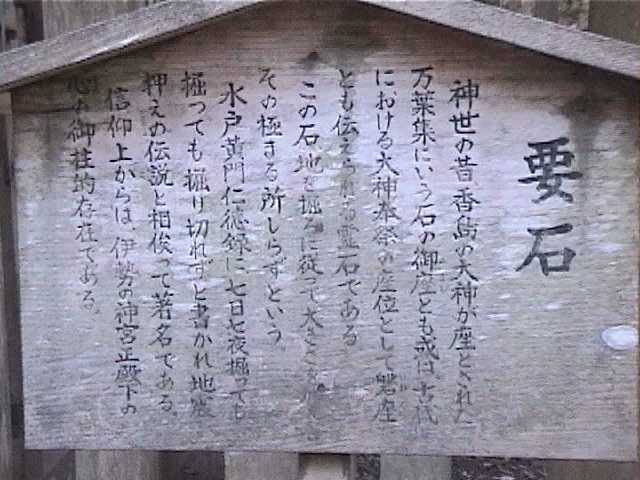 要石
神世の昔、香島の大神が座とされた
万葉集にいう石の御座とも或は古代
における大神奉祭の座位として磐座
とも伝えられる霊石である
この石地を掘るに従って大きさを
その極まる所しらずという。
水戸黄門仁徳録に七日七夜掘っても
掘っても掘り切れずと書かれ地震
押えの伝説と相俟って著名である。
信仰上からは、伊勢の神宮正殿下の
心の御柱的存在である。